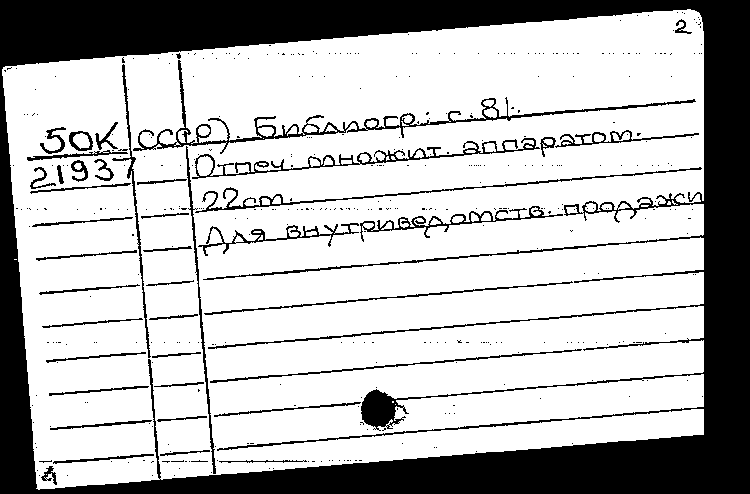 2
50К СССР). Библиогр.: с. 81.
21937 Отпеч. множит. аппаратом.
22cm.
Для внутриведомств. продажи